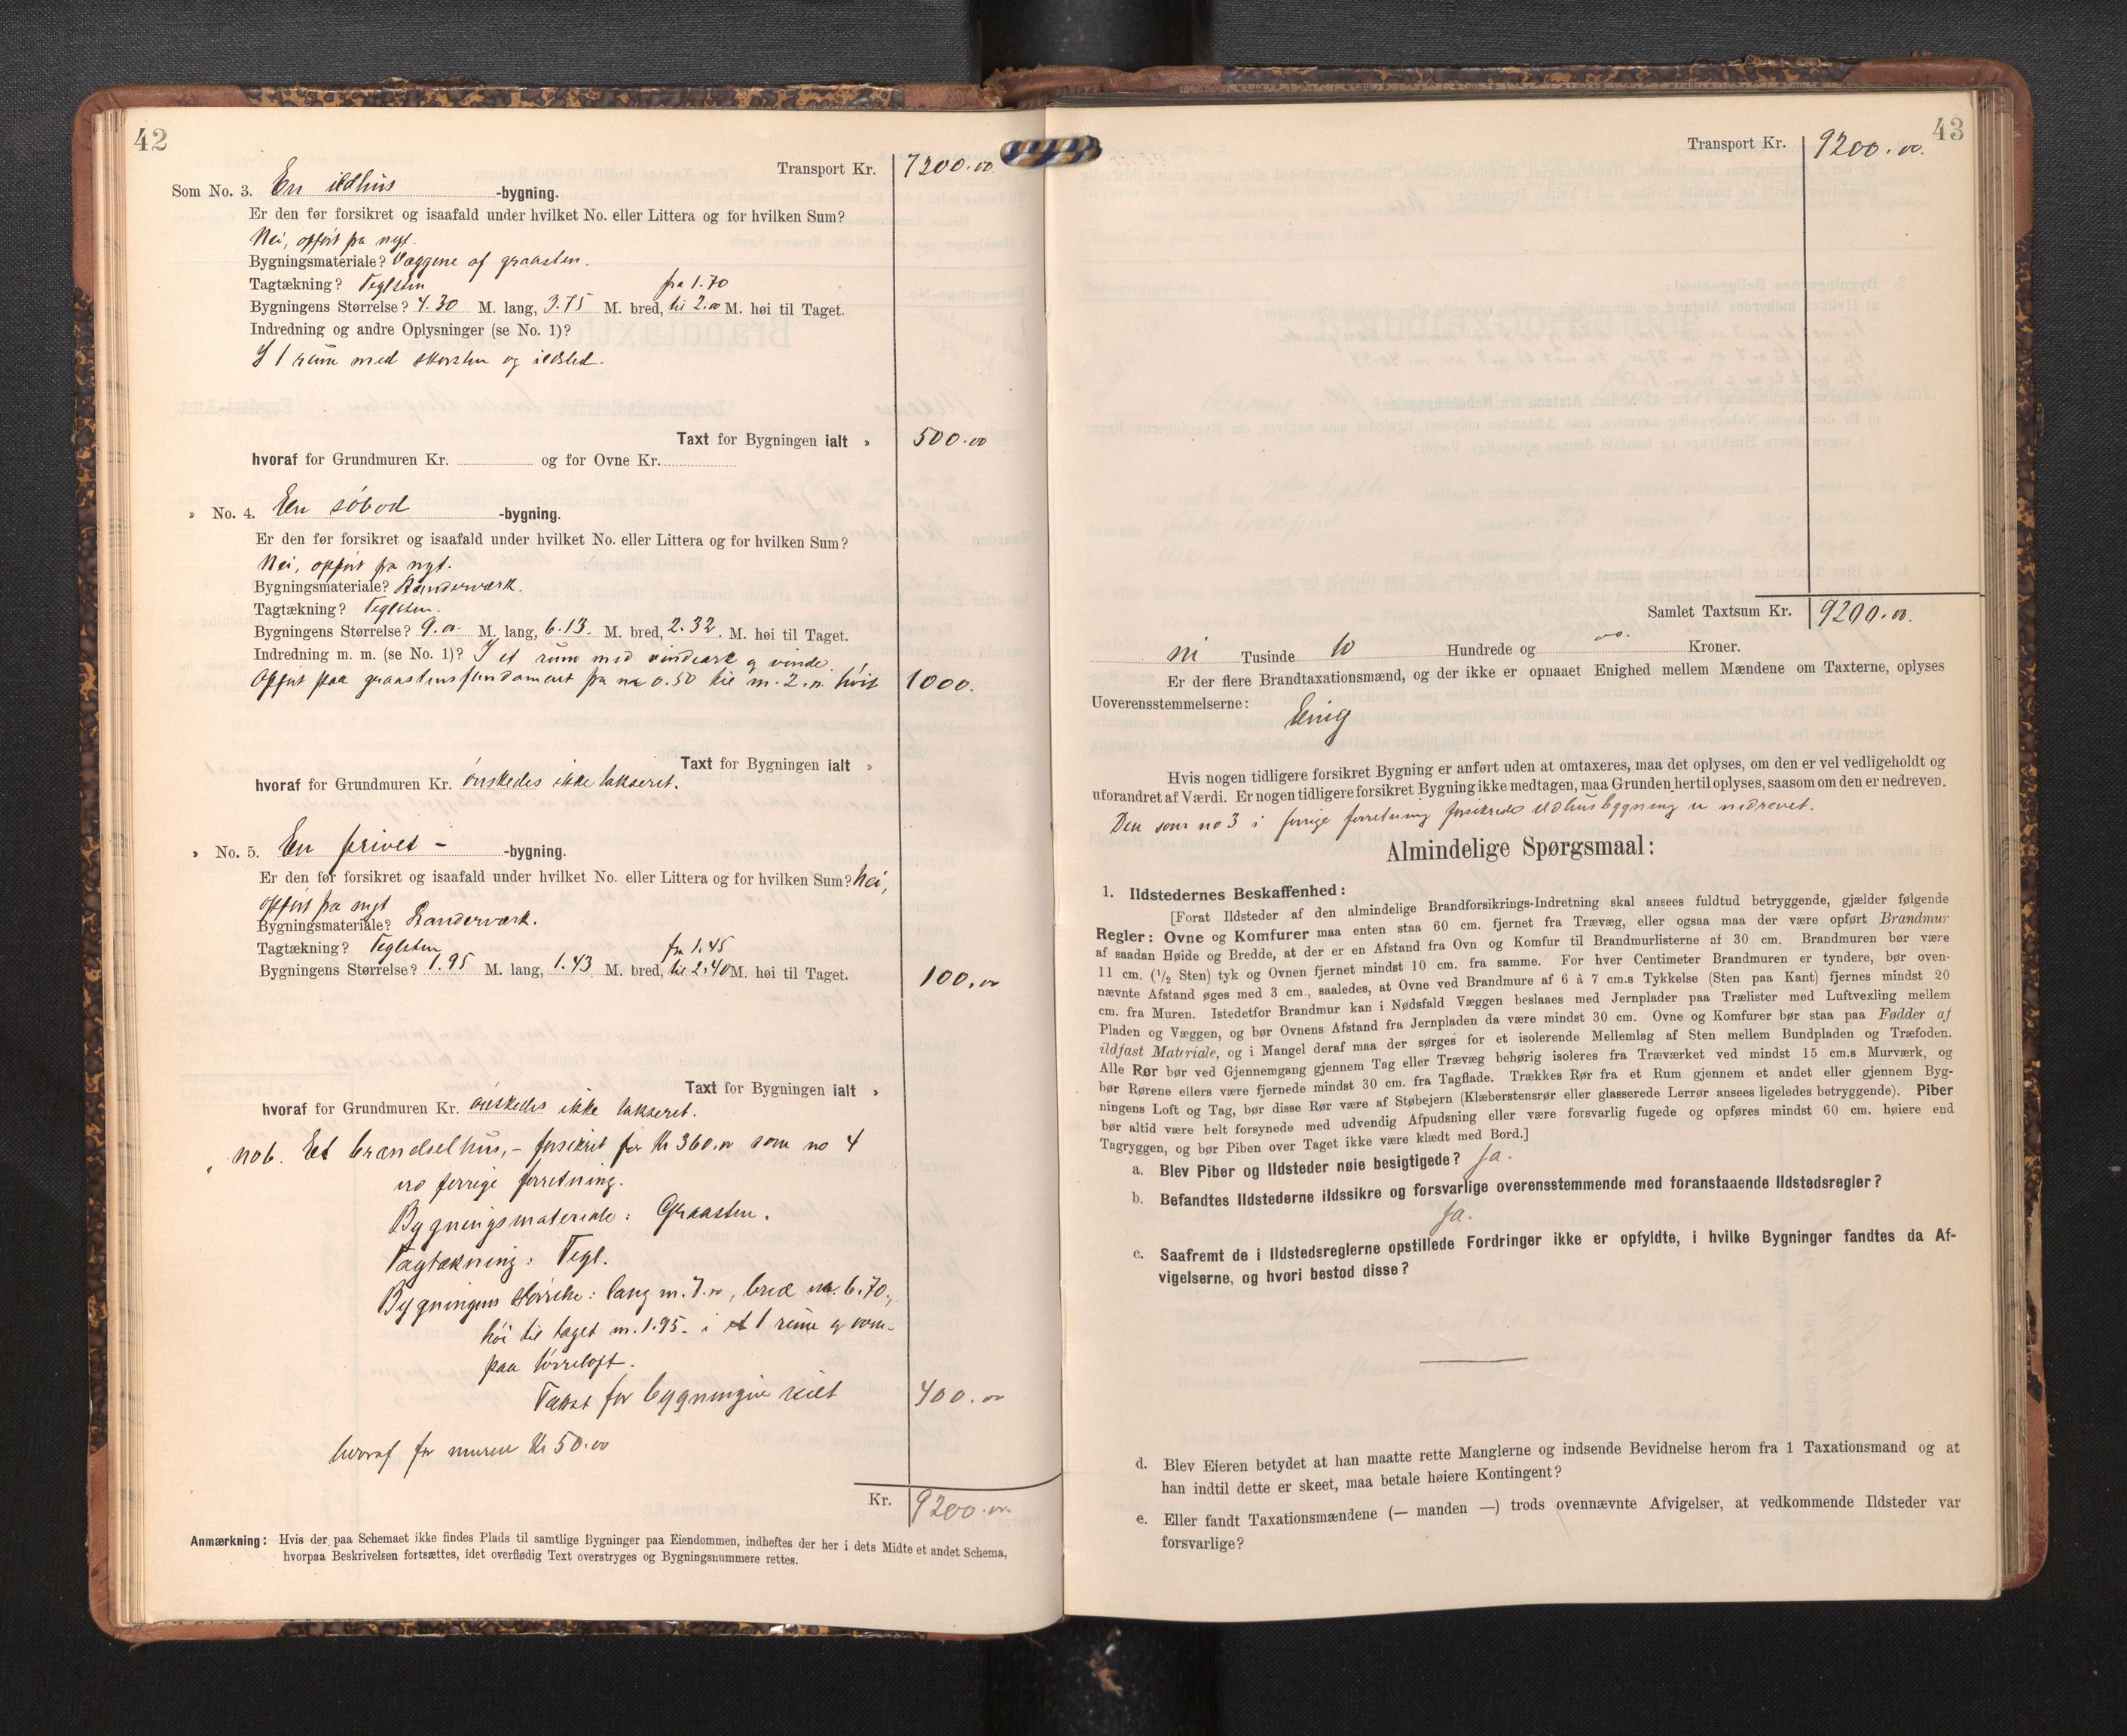 42
Transport Kr. 7200.00
Som No. 3. En ildhus -bygning.
Er den før forsikret og isaafald under hvilket No. eller Littera og for hvilken Sum?
Nei, opført fra nyt.
Bygningsmateriale? Væggene af graasten.
Tagtækning? Teglsten fra 1.70
Bygningens Størrelse? 4.30 M. lang, 3.75 M. bred, til 2.00 M. høi til Taget.
Indredning og andre Oplysninger (se No. 1)?
I 1 rum med skorsten og ildsted.
Taxt for Bygningen ialt » 500.00
hvoraf for Grundmuren Kr. og for Ovne Kr.
» No. 4. En søbod -bygning.
Er den før forsikret og isaafald under hvilket No. eller Littera og for hvilken Sum?
Nei, opført fra nyt.
Bygningsmateriale? Bindeværk.
Tagtækning? Teglsten.
Bygningens Størrelse? 9.00 M. lang, 6.13. M. bred, 2.32. M. høi til Taget.
Indredning m. m. (se No. 1)? I et rum med vindeark og vinde.
Opført paa graastensfundament fra m 0.50 til m. 2.00 høit 1000.
Taxt for Bygningen ialt »
hvoraf for Grundmuren Kr. ønskedes ikke takseret.
» No. 5. En privet - -bygning.
Er den før forsikret og isaafald under hvilket No. eller Littera og for hvilken Sum? Nei,
opført fra nyt
Bygningsmateriale? Bindeværk.
Tagtækning? Teglsten fra 1.45
Bygningens Størrelse? 1.95 M. lang, 1.43 M. bred, til 2.40 M. høi til Taget. 100.00
Taxt for Bygningen ialt »
hvoraf for Grundmuren Kr. ønskedes ikke takseret.
" No 6. Et brændselhus, - forsikret for Kr 360.00 som no 4
forrige forretning.
Bygningsmateriale: Graasten.
Tagtækning: Tegl.
Bygningens størrelse: lang m. 7.00, bred m. 6.70,
høi til taget m. 1.95 - i 1 rum og
paa tørreloft.
Takst for bygningen ialt 400.00
hvoraf for muren Kr 50.00
Kr. 9200.00
Anmærkning: Hvis der paa Schemaet ikke findes Plads til samtlige Bygninger paa Eiendommen, indheftes der her i dets Midte et andet Schema,
hvorpaa Beskrivelsen fortsættes, idet overflødig Text overstryges og Bygningsnummere rettes.
43
Transport Kr. 9200.00.
Samlet Taxtsum Kr. 9200.00.
ni Tusinde to Hundrede og 00. Kroner.
Er der flere Brandtaxationsmænd, og der ikke er opnaaet Enighed mellem Mændene om Taxterne, oplyses
Uoverensstemmelserne:
Enig
Hvis nogen tidligere forsikret Bygning er anført uden at omtaxeres, maa det oplyses, om den er vel vedligeholdt og
uforandret af Værdi. Er nogen tidligere forsikret Bygning ikke medtagen, maa Grunden hertil oplyses, saasom om den er nedreven.
Den som no 3 i forrige forretning forsikrede ildhusbygning er nedrevet.
Almindelige Spørgsmaal:
1. Ildstedernes Beskaffenhed:
[Forat Ildsteder af den almindelige Brandforsikrings-Indretning skal ansees fuldtud betryggende, gjælder følgende
Regler: Ovne og Komfurer maa enten staa 60 cm. fjernet fra Trævæg, eller ogsaa maa der være opført Brandmur
af saadan Høide og Bredde, at der er en Afstand fra Ovn og Komfur til Brandmurlisterne af 30 cm. Brandmuren bør være
11 cm. (1/2 Sten) tyk og Ovnen fjernet mindst 10 cm. fra samme. For hver Centimeter Brandmuren er tyndere, bør oven-
nævnte Afstand øges med 3 cm., saaledes, at Ovne ved Brandmure af 6 à 7 cm.s Tykkelse (Sten paa Kant) fjernes mindst 20
cm. fra Muren. Istedetfor Brandmur kan i Nødsfald Væggen beslaaes med Jernplader paa Trælister med Luftvexling mellem
Pladen og Væggen, og bør Ovnens Afstand fra Jernpladen da være mindst 30 cm. Ovne og Komfurer bør staa paa Fødder af
ildfast Materiale, og i Mangel deraf maa der sørges for et isolerende Mellemlag af Sten mellem Bundpladen og Træfoden.
Alle Rør bør ved Gjennemgang gjennem Tag eller Trævæg behørig isoleres fra Træværket ved mindst 15 cm.s Murværk, og
bør Rørene ellers være fjernede mindst 30 cm. fra Tagflade. Trækkes Rør fra et Rum gjennem et andet eller gjennem Byg-
ningens Loft og Tag, bør disse Rør være af Støbejern (Klæberstensrør eller glasserede Lerrør ansees ligeledes betryggende). Piber
bør altid være helt forsynede med udvendig Afpudsning eller være forsvarlig fugede og opføres mindst 60 cm. høiere end
Tagryggen, og bør Piben over Taget ikke være klædt med Bord.]
a. Blev Piber og Ildsteder nøie besigtigede? Ja.
b. Befandtes Ildstederne ildssikre og forsvarlige overensstemmende med foranstaaende Ildstedsregler?
Ja.
c. Saafremt de i Ildstedsreglerne opstillede Fordringer ikke er opfyldte, i hvilke Bygninger fandtes da Af-
vigelserne, og hvori bestod disse?
d. Blev Eieren betydet at han maatte rette Manglerne og indsende Bevidnelse herom fra 1 Taxationsmand og at
han indtil dette er skeet, maa betale høiere Kontingent?
e. Eller fandt Taxationsmændene (— manden —) trods ovennævnte Afvigelser, at vedkommende Ildsteder var
forsvarlige?